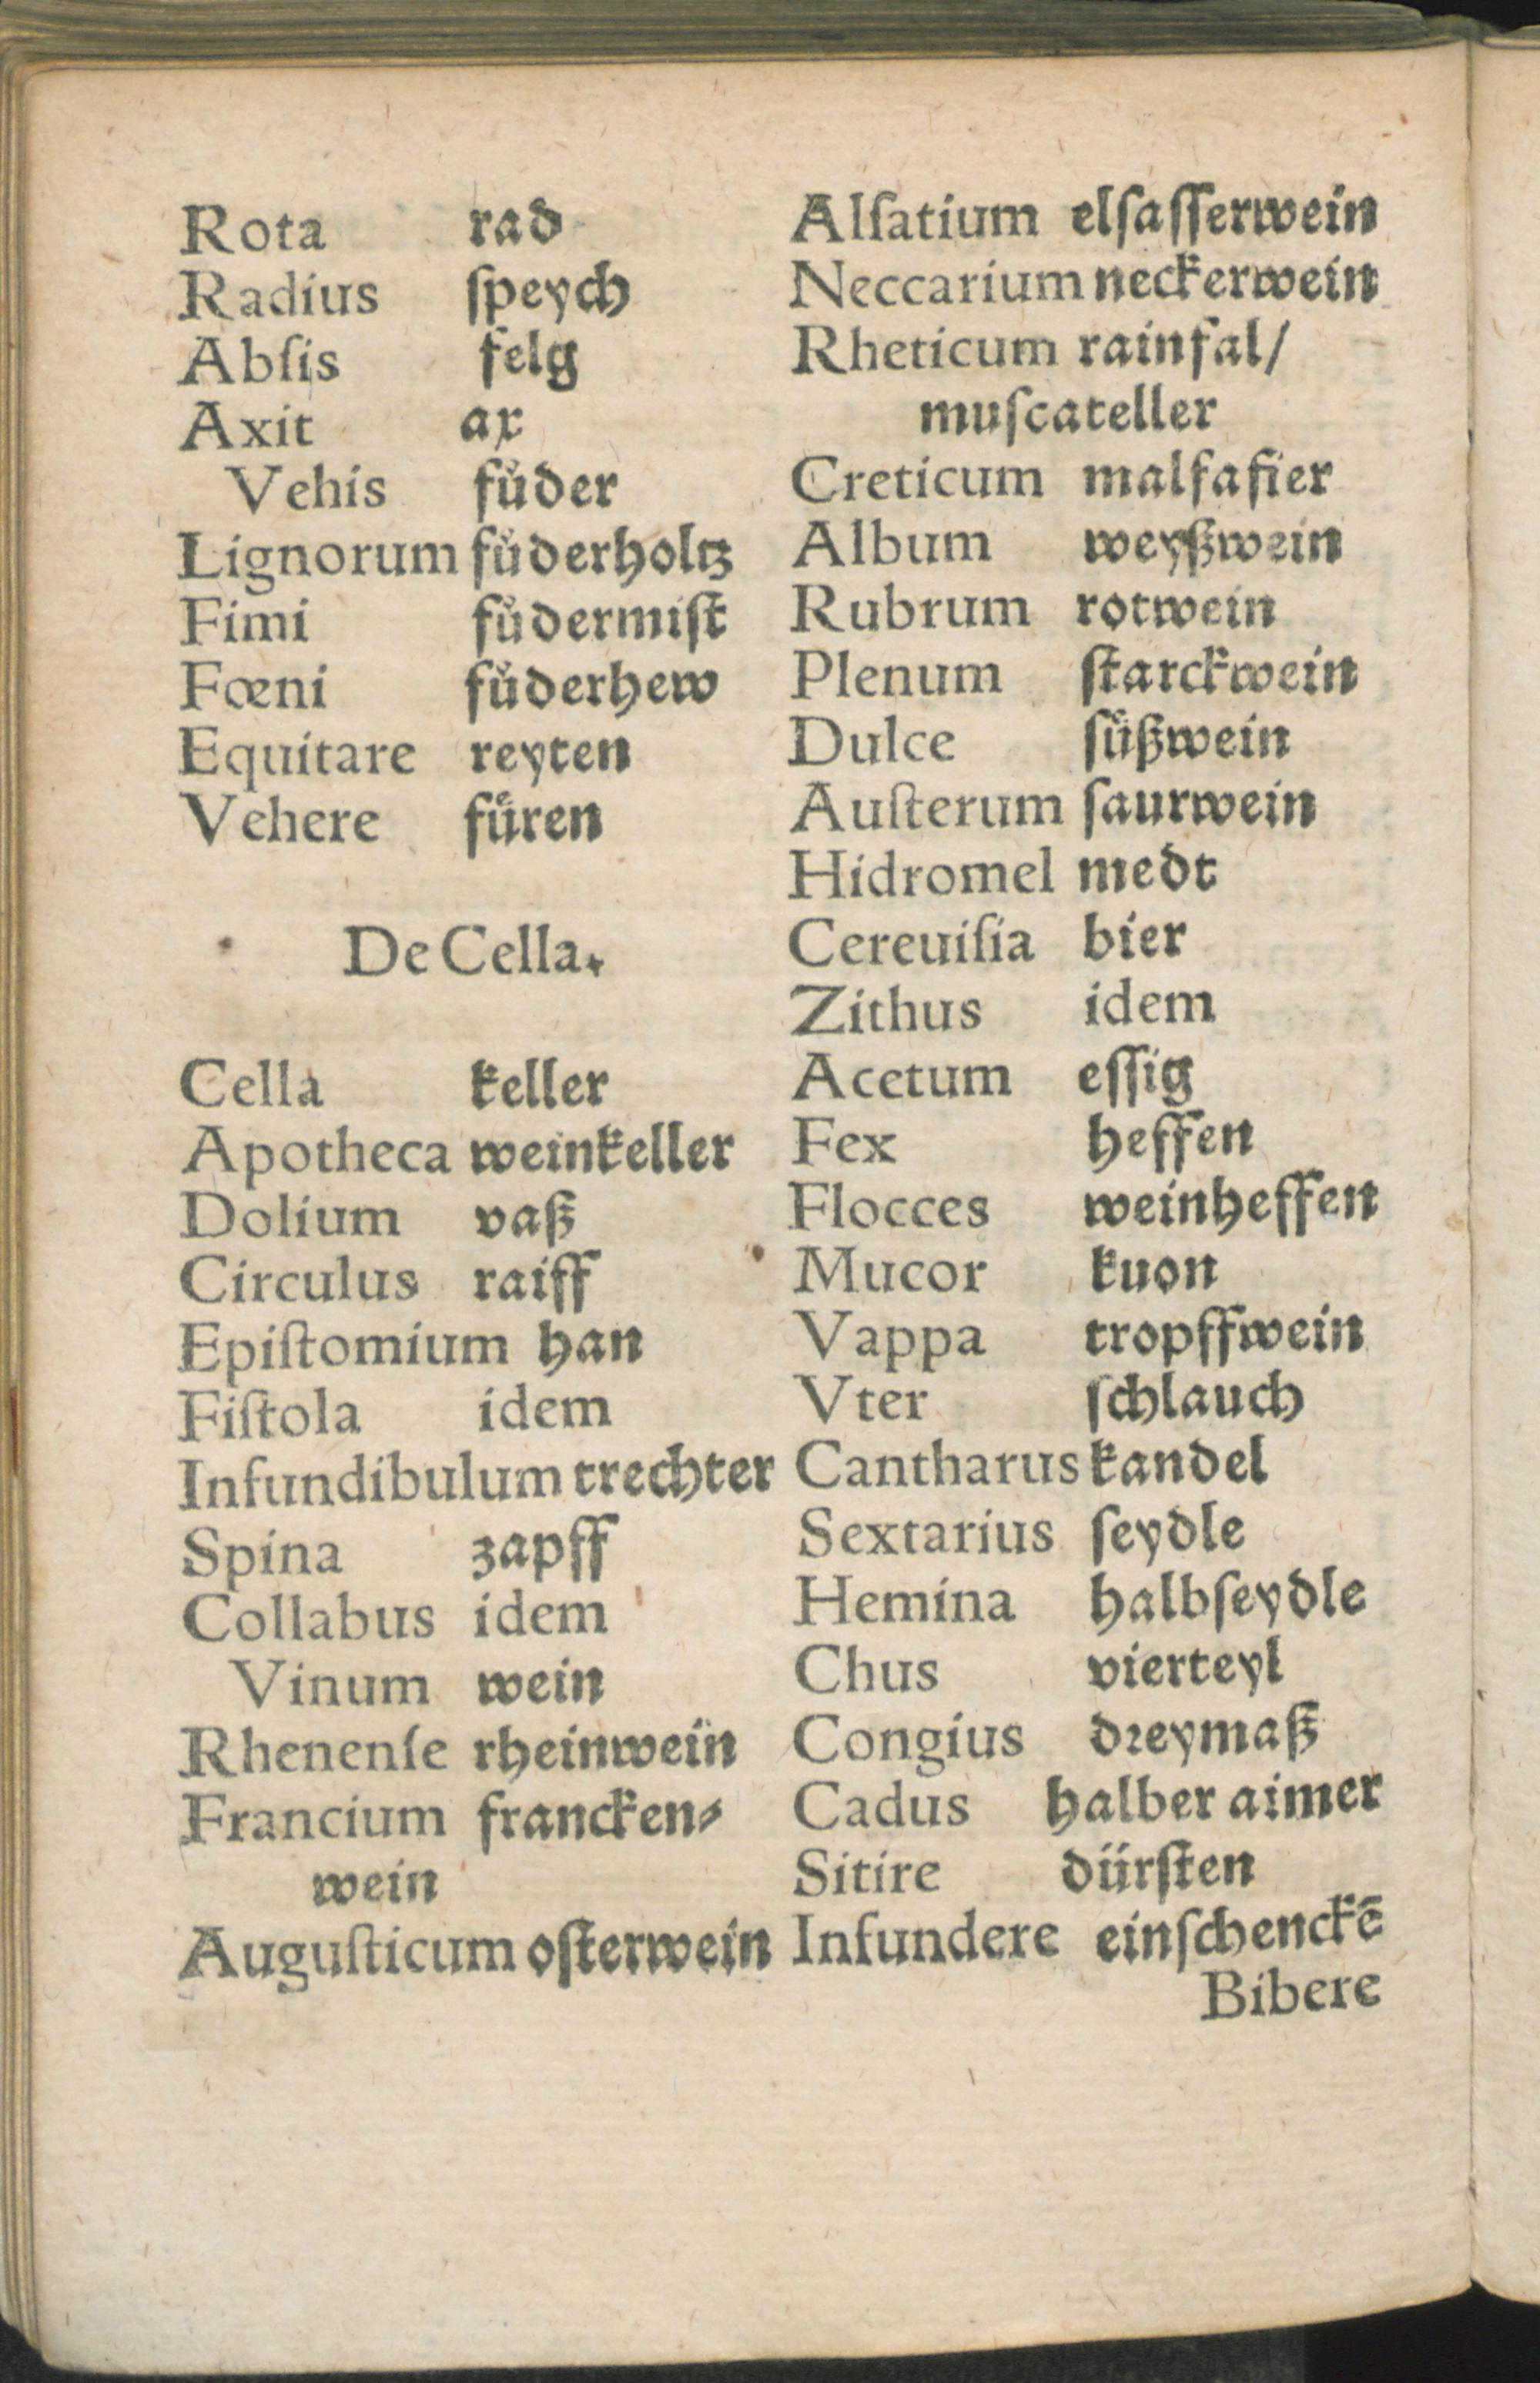 Rota rad
Radius ſpeych
Abſis felg
Axit ax
Vehis fůder
Lignorum fůderholtz
Fimi fůdermiſt
Fœni fůderhew
Equitare reyten
Vehere fuͤren
De Cella.
Cella keller
Apotheca weinkeller
Dolium vaß
Circulus raiff
Epiſtomium han
Fiſtola idem
Infundibulum trechter
Spina zapff
Collabus idem
Vinum wein
Rhenenſe rheinwein
Francium francken⸗
wein
Auguſticum oſterwein
Alſatium elſaſſerwein
Neccarium neckerwein
Rheticum rainfal/
muſcateller
Creticum malfaſier
Album weyßwein
Rubrum rotwein
Plenum ſtarckwein
Dulce ſuͤßwein
Auſterum ſaurwein
Hidromel medt
Cereuiſia bier
Zithus idem
Acetum eſſig
Fex heffen
Flocces weinheffen
Mucor kuon
Vappa tropffwein
Vter ſchlauch
Cantharus kandel
Sextarius ſeydle
Hemina halbſeydle
Chus vierteyl
Congius dꝛeymaß
Cadus halber aimer
Sitire dürſten
Infundere einſchenckē
Bibere